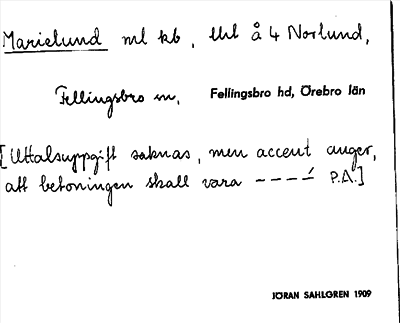 Marielund ml kb, Uhl å 4 Norlund,
Fellingsbro sn, Fellingsbro hd, Örebro län
[Uttalsuppgift saknas, men accent anger,
att betoningen skall vara ----́ P.A.]
JÖRAN SAHLGREN 1909